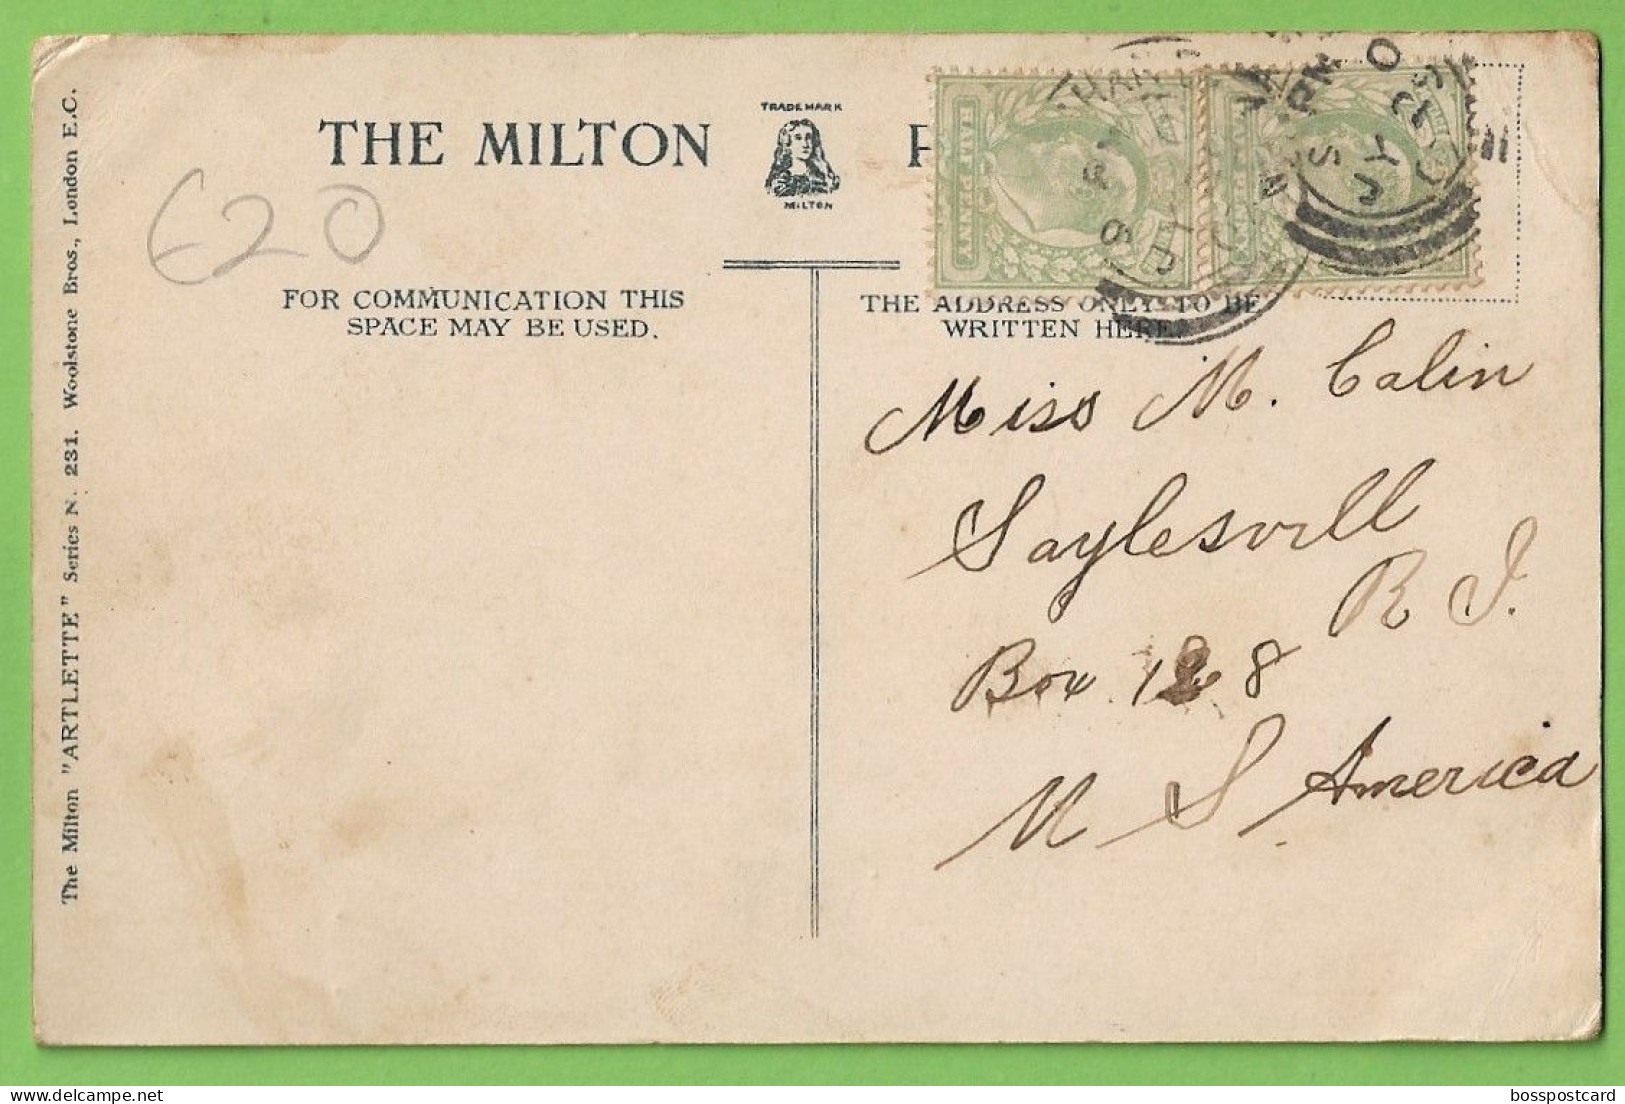 The Milton "ARTLETTE" Series N. 231. Woolstone Bros., London E.C.
THE MILTON
TRADE MARK
MILTON
P
620
FOR COMMUNICATION THIS
SPACE MAY BE USED.
THE ADDRESS ONLY TO BE
WRITTEN HERE.
Miss M. Calin
Saylesvill
R I.
Box 128
U S America
bosspostcard